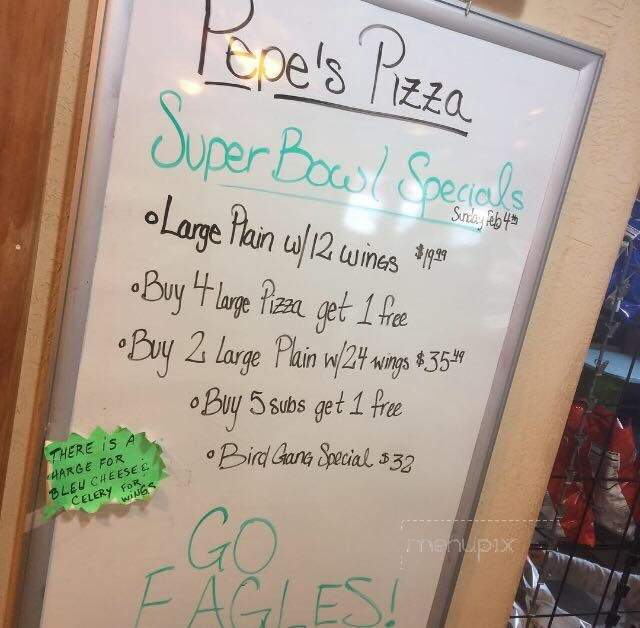 Pepe's Pizza
Super Bowl Specials
Sunday Feb 4th
• Large Plain w/12 wings $19.99
• Buy 4 large Pizza get 1 free
• Buy 2 Large Plain w/24 wings $35.49
• Buy 5 subs get 1 free
• Bird Gang Special $32
THERE IS A
HARGE FOR
BLEU CHEESE &
CELERY FOR
WINGS
GO
EAGLES!
menupix